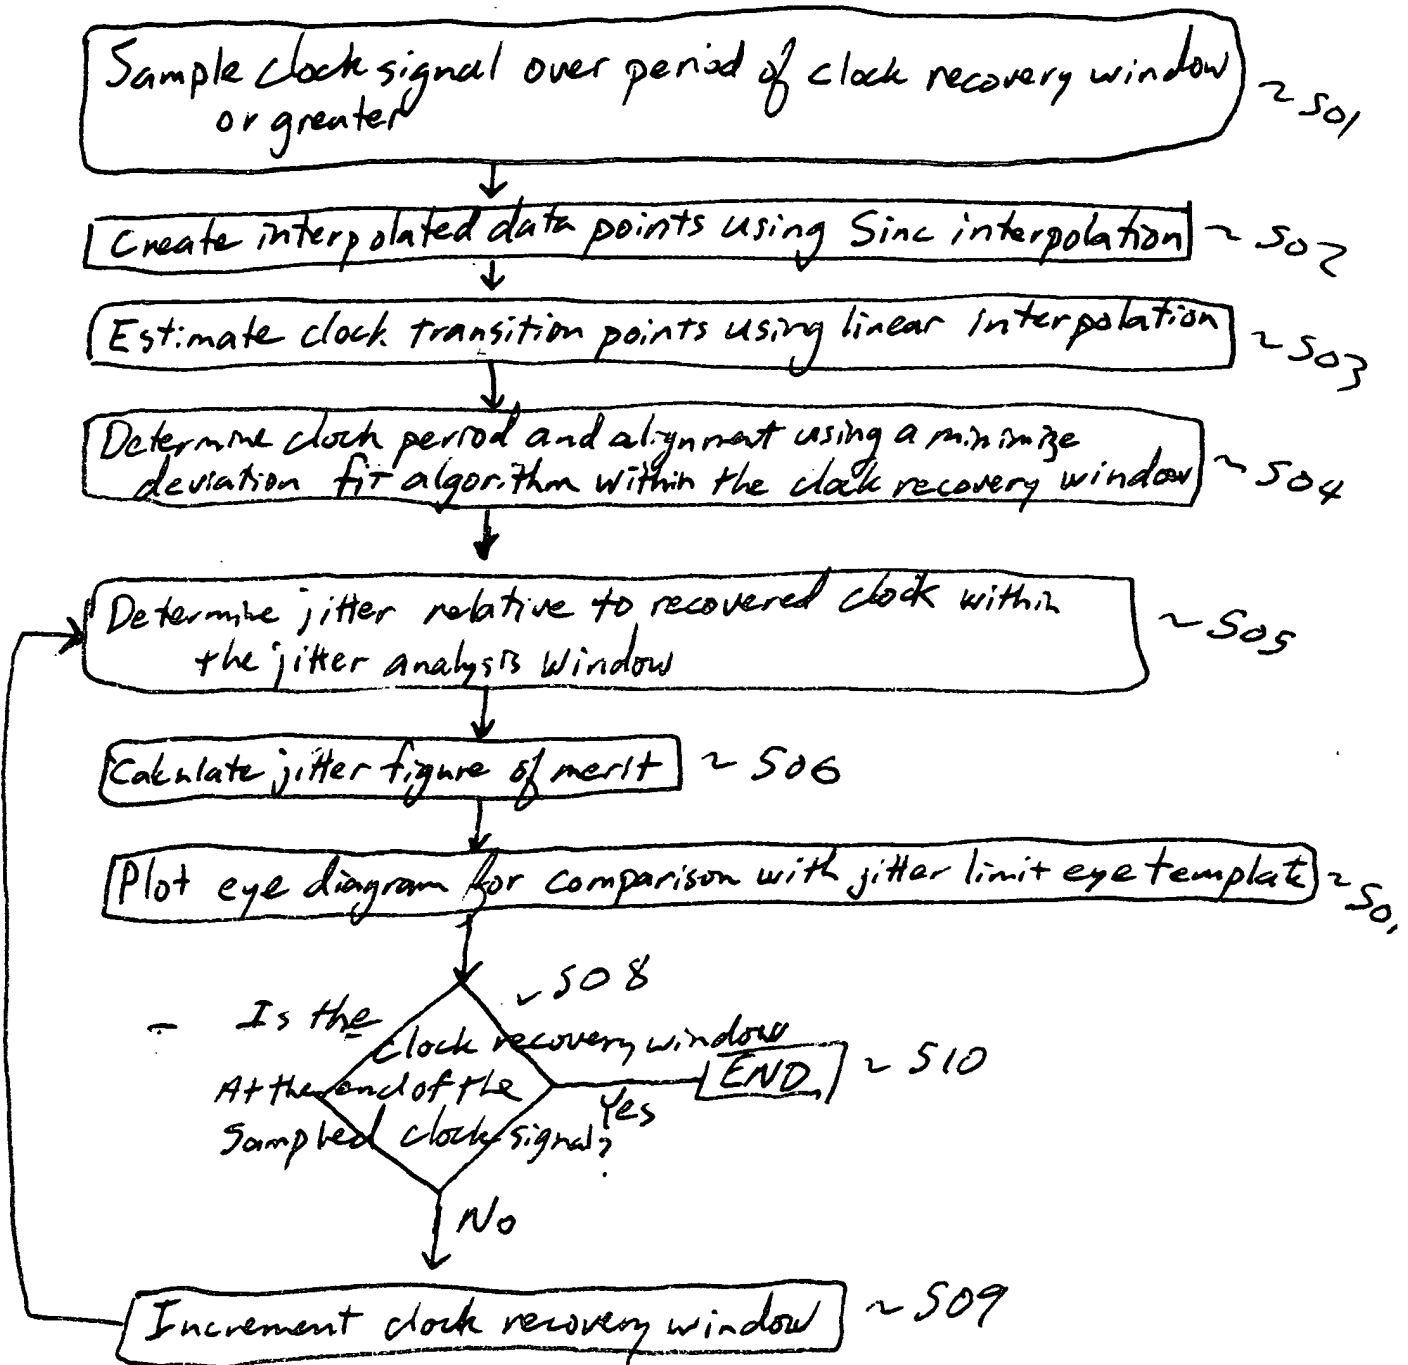 Sample clock signal over period of clock recovery window
or greater
~ S01
Create interpolated data points using Sinc interpolation
~ S02
Estimate clock transition points using linear interpolation
~ S03
Determine clock period and alignment using a minimize
deviation fit algorithm within the clock recovery window
~ S04
Determine jitter relative to recovered clock within
the jitter analysis window
~ S05
Calculate jitter figure of merit
~ S06
Plot eye diagram for comparison with jitter limit eye template
~ S0
S08
Is the
clock recovery window
At the end of the
Sampled clock signal?
Yes
END
~ S10
No
Increment clock recovery window
~ S09